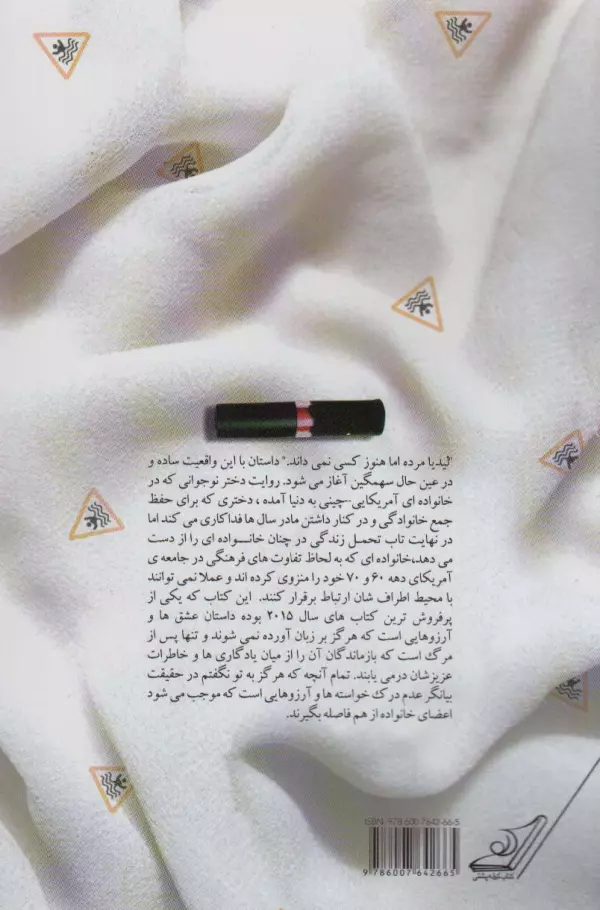 "لیدیا مرده اما هنوز کسی نمی داند." داستان با این واقعیت ساده و
در عین حال سهمگین آغاز می شود. روایت دختر نوجوانی که در
خانواده ای آمریکایی-چینی به دنیا آمده ، دختری که برای حفظ
جمع خانوادگی و در کنار داشتن مادر سال ها فداکاری می کند اما
در نهایت تاب تحمل زندگی در چنان خانواده ای را از دست
می دهد،خانواده ای که به لحاظ تفاوت های فرهنگی در جامعه ی
آمریکای دهه ۶۰ و ۷۰ خود را منزوی کرده اند و عملا نمی توانند
با محیط اطراف شان ارتباط برقرار کنند. این کتاب که یکی از
پرفروش ترین کتاب های سال ۲۰۱۵ بوده داستان عشق ها و
آرزوهایی است که هرگز بر زبان آورده نمی شوند و تنها پس از
مرگ است که بازماندگان آن را از میان یادگاری ها و خاطرات
عزیزشان درمی یابند. تمام آنچه که هرگز به تو نگفتم در حقیقت
بیانگر عدم درک خواسته ها و آرزوهایی است که موجب می شود
اعضای خانواده از هم فاصله بگیرند.
ISBN: 978-600-7642-66-5
9 786007 642665
کتاب کوله پشتی